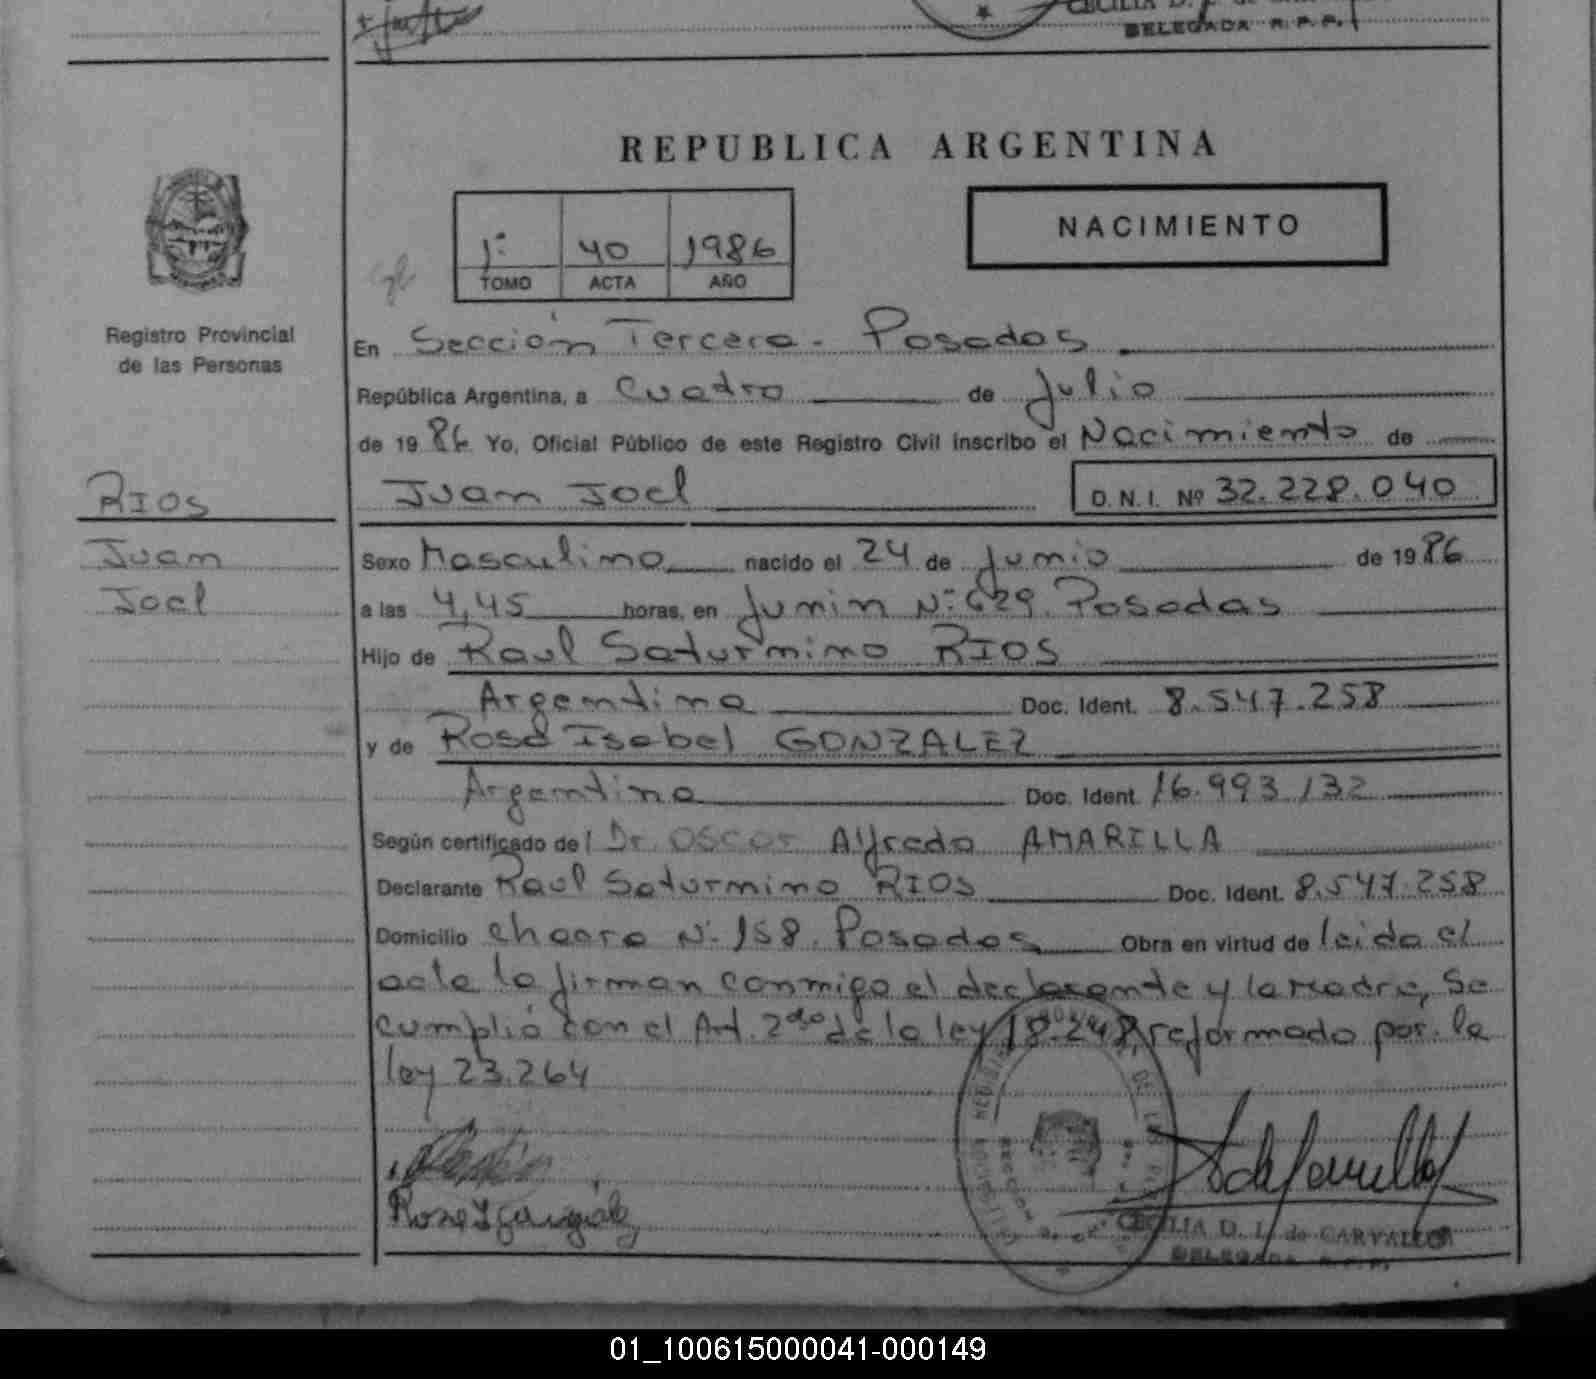 CECILIA D.
DELEGADA R.P.P.
REPUBLICA ARGENTINA
NACIMIENTO
1º 40 1986
TOMO ACTA AÑO
Registro Provincial
de las Personas
En Sección Tercera - Posadas
República Argentina, a Cuatro de Julio
de 1986 Yo, Oficial Público de este Registro Civil inscribo el Nacimiento de
RIOS
Juan Joel D.N.I. Nº 32.228.040
Juan
Joel
Sexo Masculino nacido el 24 de Junio de 1986
a las 4,45 horas, en Junin Nº 629. Posadas
Hijo de Raul Saturnino RIOS
Argentina Doc. Ident. 8.547.258
y de Rosa Isabel GONZALEZ
Argentina Doc. Ident. 16.993.132
Según certificado del Dr. Oscar Alfredo AMARILLA
Declarante Raul Saturnino RIOS Doc. Ident. 8.547.258
Domicilio chacra Nº 158. Posadas Obra en virtud de leida el
acta la firman conmigo el declarante y la Madre, Se
cumplió con el Art. 2do de la ley 18.248, reformado por la
ley 23.264
CECILIA D. L. de CARVALLO
DELEGADA R.P.P.
01_100615000041-000149